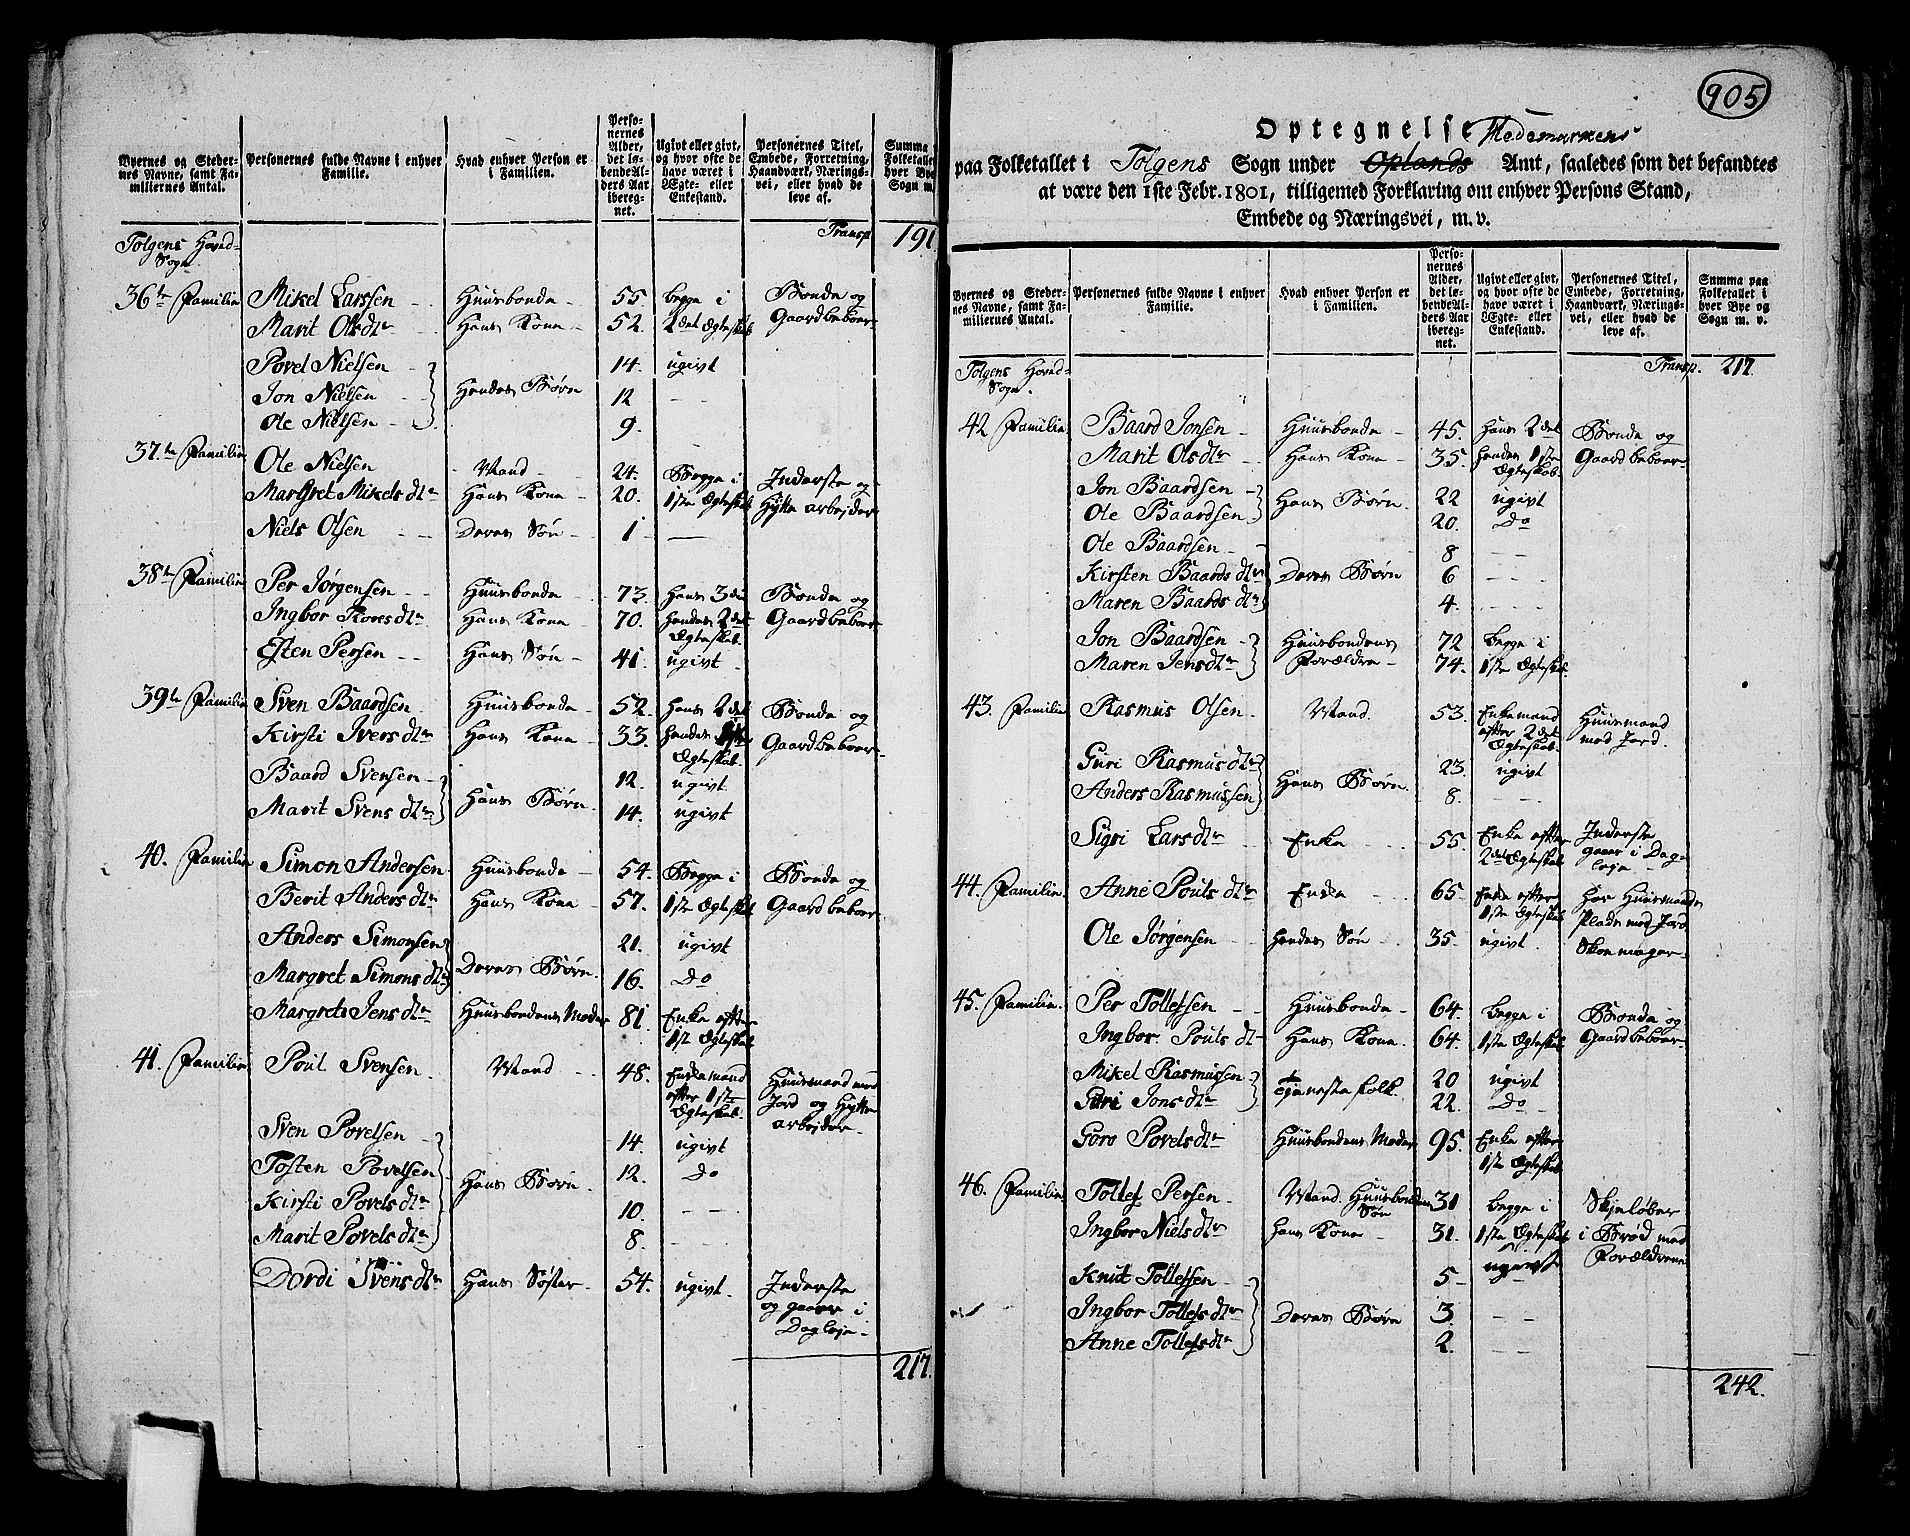 Byernes og Steder- Personernes fulde Navne i enhver Hvad enhver Person er Perso- Ugivt eller givt, Personernes Titel, Summa
nes Navne, samt Fa- Familie. i Familien. nernes og hvor ofte de Embede, Forretning, Folketallet
miliernes Antal. Alder, have været i Haandværk, Nærings- hver Bye
det lø- Ægte- eller vei, eller hvad de Sogn m.
bende Al- Enkestand. leve af.
ders Aar
ibereg-
net.
Transp 191
Tolgens Hoved-
Sogn
36te Familie Mikel Larssen Huusbonde 55 begge i Bonde og
Marit Olsdtr Hans Kone 52. 2det Ægteskab Gaardbeboer
Povel Nielsen 14. ugivt
Jon Nielsen Hendes Børn 12 — —
Ole Nielsen 9.
37.te Familie Ole Nielsen Mand 24. Begge i Inderste og
Margret Mikelsdtr Hans Kone 20. 1ste Ægteskab Hytte arbejder
Niels Olsen Deres Søn 1 —
38te Familie Per Jørgensen Huusbonde 73. Hans 3die Bonde og
Ingbor Toresdtr Hans Kone 70. Hendes 2det Gaardbeboer
Ægteskab.
Esten Persen Hans Søn 41 ugivt
39te Familie Sven Baardsen Huusbonde 52. Hans 2det Bonde og
Kirsti Iversdtr Hans Kone 33. Hendes 1ste Gaardbeboer
Ægteskab.
Baard Svensen 12. ugivt
Marit Svensdtr Hans Børn 14. ugivt
40. Familie Simon Andersen Huusbonde 54. Begge i Bonde og
Berit Andersdtr Hans Kone 57. 1ste Ægteskab Gaardbeboer
Anders Simonsen 21. ugivt
Margret Simonsdtr Deres Børn 16. Do
Margrete Jensdtr Huusbondens Moder 81. Enke efter
1st Ægteskab
41. Familie Poul Svensen Mand 48. Enkemand Huusmand med
efter 1ste Jord og Hytte
Ægteskab. arbejder
Sven Povelsen 14. ugivt
Tosten Povelsen Hans Børn 12. Do
Kirsti Povelsdtr 10. — —
Marit Povelsdtr 8. —
Dordi Svensdtr Hans Søster 54. ugivt. Inderste
og gaaer i
Dagleje
217.
905
Optegnelse Hedemarkens
paa Folketallet i Tolgens Sogn under Oplands Amt, saaledes som det befandtes
at være den 1ste Febr. 1801, tilligemed Forklaring om enhver Persons Stand,
Embede og Næringsvei, m. v.
Byernes og Steder- Personernes fulde Navne i enhver Hvad enhver Person er Perso- Ugivt eller givt, Personernes Titel, Summa paa
nes Navne, samt Fa- Familie. i Familien. nernes og hvor ofte de Embede, Forretning, Folketallet i
miliernes Antal. Alder, have været i Haandværk, Nærings- hver Bye og
det lø- Ægte- eller vei, eller hvad de Sogn m. v.
bende Al- Enkestand. leve af.
ders Aar
ibereg-
net.
Transp. 217.
Tolgens Hoved-
Sogn.
42 Familie Baard Jonsen Huusbonde 45. Hans 2det Bonde og
Marit Olsdtr Hans Kone 35. Hendes 1ste Gaardbeboer
Ægteskab.
Jon Baardsen 22 ugivt
Ole Baardsen Hans Børn. 20. Do
Ole Baardsen 8 — —
Kirsten Baardsdtr Deres Børn 6 — —
Maren Baardsdtr 4. — —
Jon Baardsen Huusbondens 72 begge i
Maren Jensdtr Forældre 74. 1ste Ægteskab.
43. Familie Rasmus Olsen Mand. 53. Enkemand Huusmand
efter 2det med Jord.
Ægteskab.
Guri Rasmusdtr 23. ugivt
Anders Rasmussen Hans Børn. 8. — —
Sigri Larsdtr Enke 55. Enke efter Inderste
2det Ægteskab gaaer i Dag-
leje
44. Familie. Anne Poulsdtr Enke 65. Enke efter har Huusmands
1ste Ægteskab Plads med Jord
Ole Jørgensen Hendes Søn 35. ugivt. Skoemager
45. Familie. Per Tollefsen Huusbonde 64. begge i Bonde og
Ingbor Poulsdtr Hans Kone 64. 1ste Ægteskab Gaardbeboer
Mikel Rasmussen 20 ugivt
Guri Jonsdtr Tjenestefolk. 22. Do
Goro Povelsdtr Huusbondens Moder 95. Enke efter
1ste Ægteskab
46. Familie Tollef Persen Mand. Huusbondens 31 begge i Skjeløber
Søn
Ingbor Nielsdtr Hans Kone 31. 1ste Ægteskab i Brød med
Forældrene
Knut Tollefsen 5 ugivt
Ingbor Tollefsdtr Deres Børn 3. — —
Anne Tollefsdtr 2. — —
242.